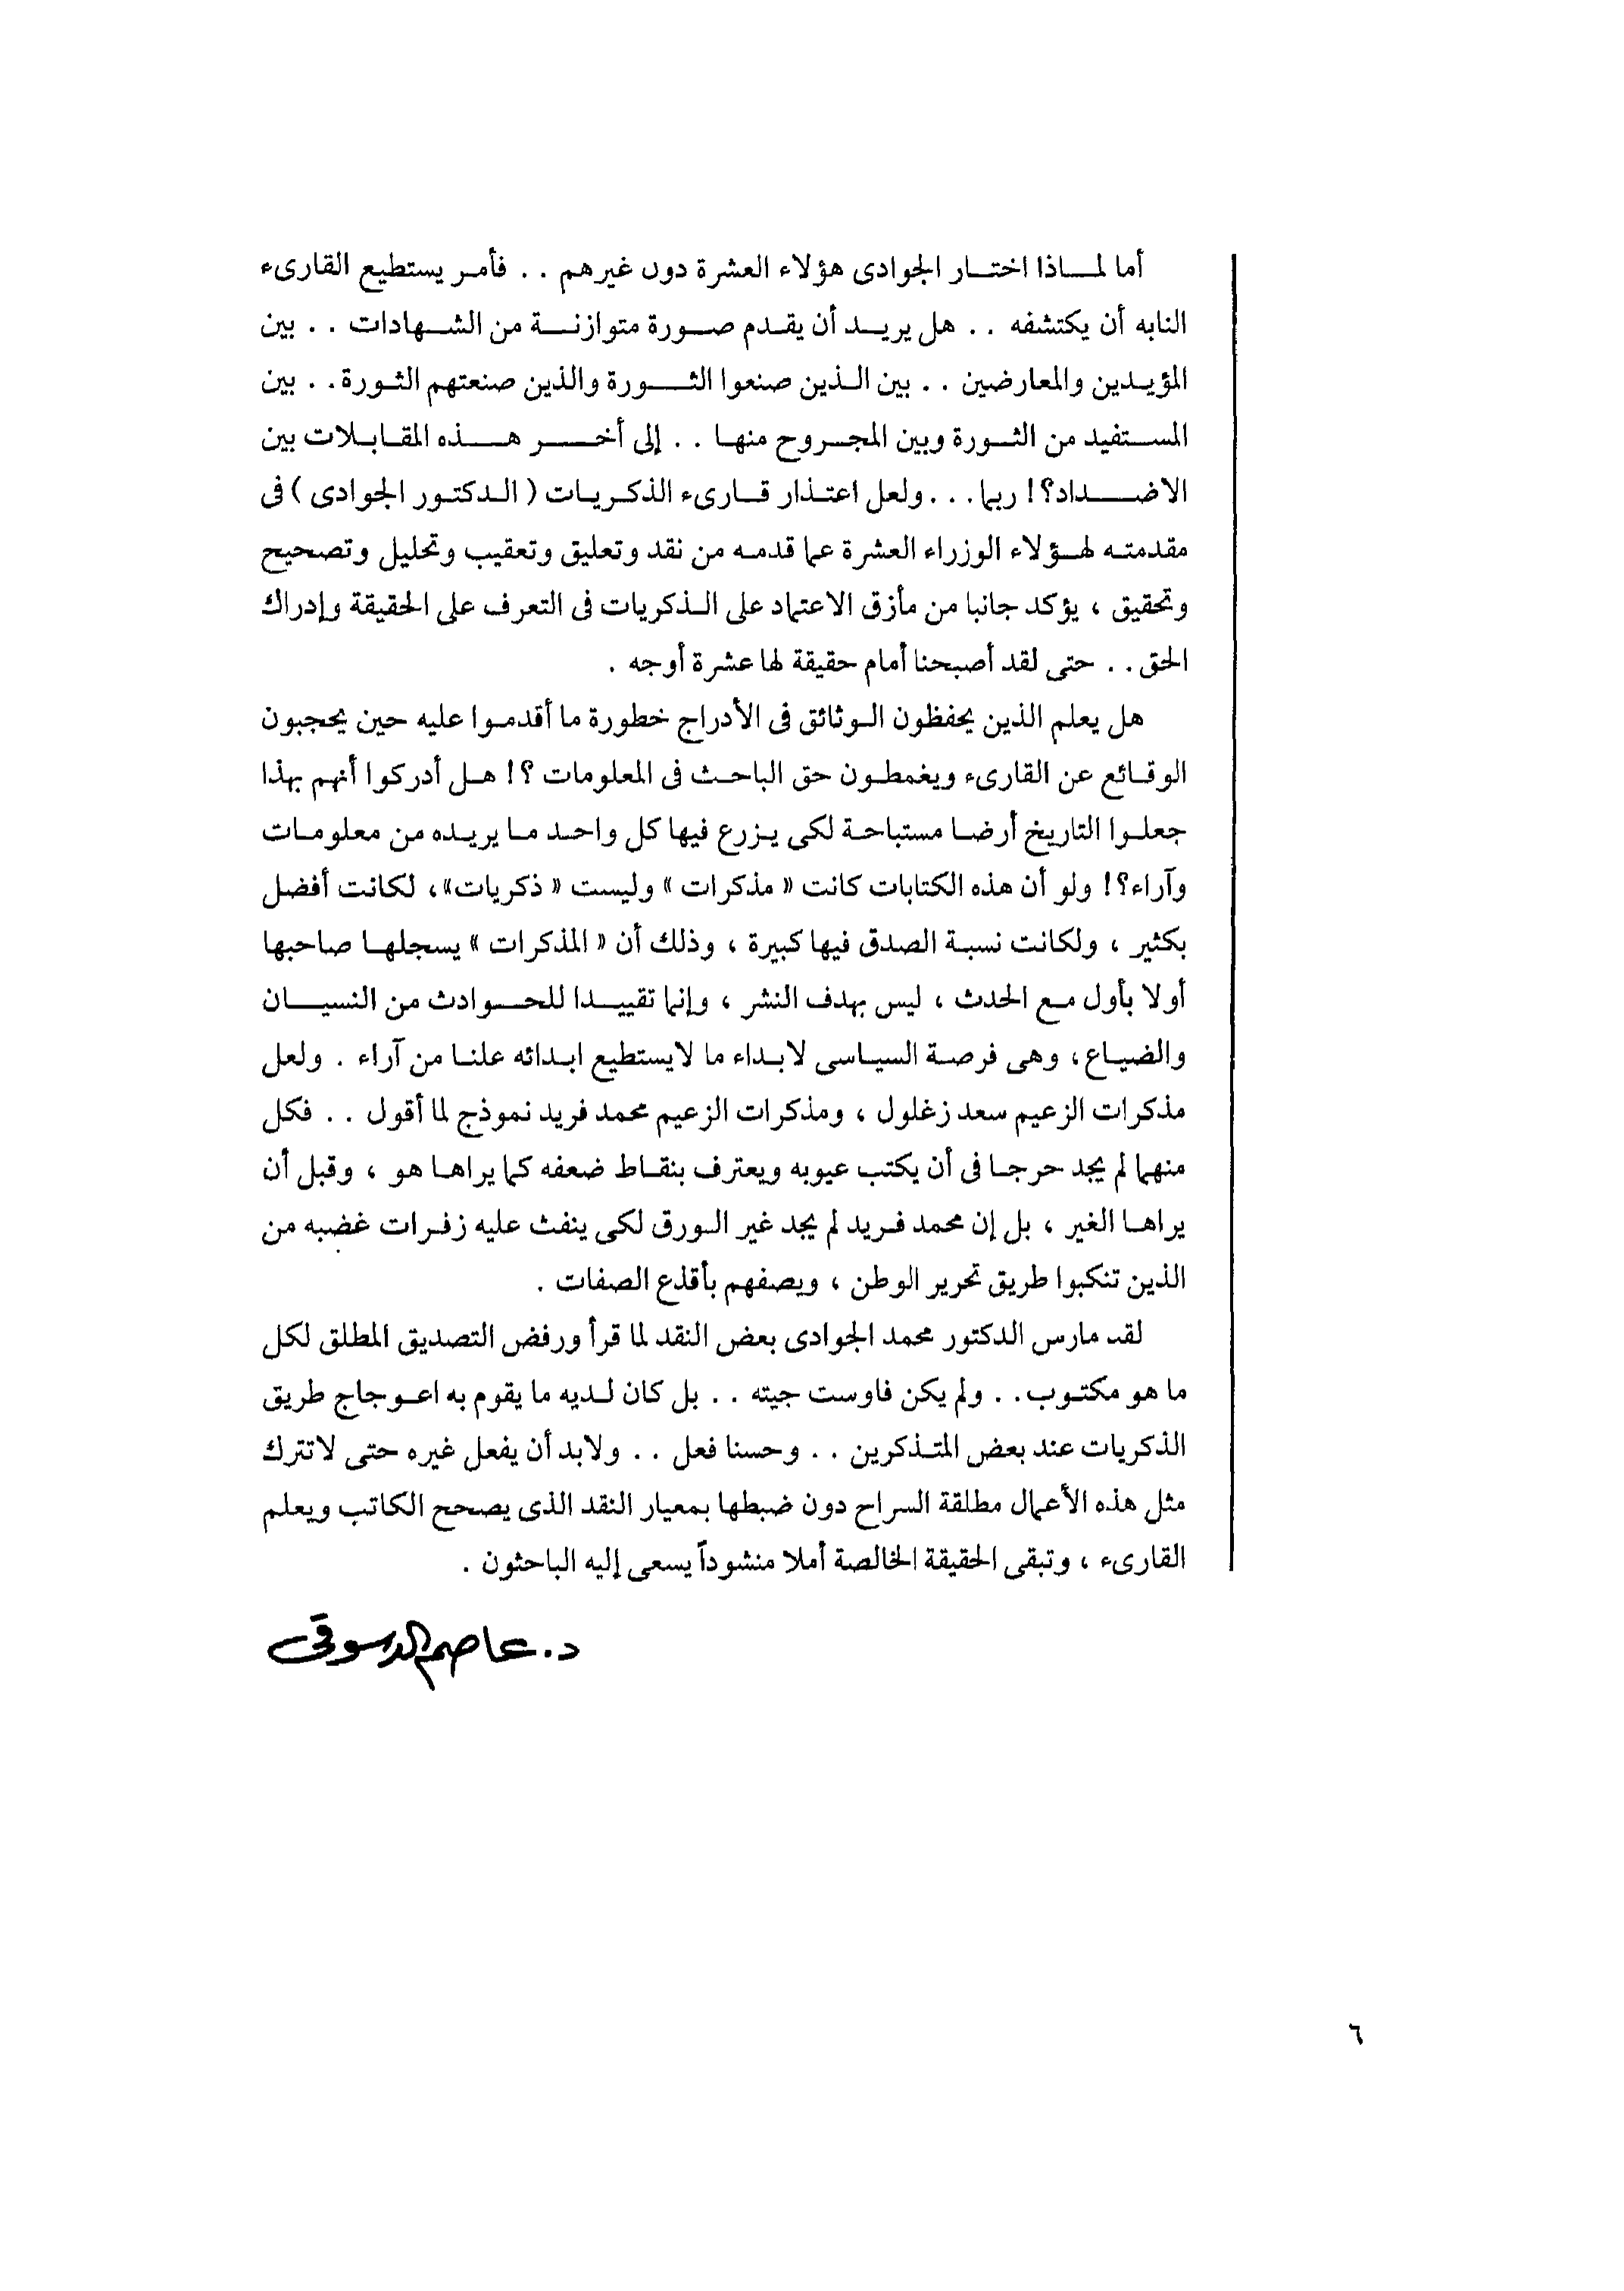 أما لماذا اختار الجوادى هؤلاء العشرة دون غيرهم . . فأمر يستطيع القارىء
النابه أن يكتشفه . . هل يريد أن يقدم صورة متوازنة من الشهادات . . بين
المؤيدين والمعارضين . . بين الذين صنعوا الثورة والذين صنعتهم الثورة . . بين
المستفيد من الثورة وبين المجروح منها . . إلى أخر هذه المقابلات بين
الاضداد؟! ربما . . . ولعل اعتذار قارىء الذكريات ( الدكتور الجوادى ) فى
مقدمته لهؤلاء الوزراء العشرة عما قدمه من نقد وتعليق وتعقيب وتحليل وتصحيح
وتحقيق ، يؤكد جانبا من مأزق الاعتماد على الذكريات فى التعرف على الحقيقة وإدراك
الحق . . حتى لقد أصبحنا أمام حقيقة لها عشرة أوجه .
هل يعلم الذين يحفظون الوثائق فى الأدراج خطورة ما أقدموا عليه حين يحجبون
الوقائع عن القارىء ويغمطون حق الباحث فى المعلومات ؟! هل أدركوا أنهم بهذا
جعلوا التاريخ أرضا مستباحة لكى يزرع فيها كل واحد ما يريده من معلومات
وآراء؟! ولو أن هذه الكتابات كانت « مذكرات » وليست « ذكريات» ، لكانت أفضل
بكثير ، ولكانت نسبة الصدق فيها كبيرة ، وذلك أن « المذكرات » يسجلها صاحبها
أولا بأول مع الحدث ، ليس بهدف النشر ، وإنما تقييدا للحوادث من النسيان
والضياع ، وهى فرصة السياسى لابداء ما لايستطيع ابدائه علنا من آراء . ولعل
مذكرات الزعيم سعد زغلول ، ومذكرات الزعيم محمد فريد نموذج لما أقول . . فكل
منهما لم يجد حرجا فى أن يكتب عيوبه ويعترف بنقاط ضعفه كما يراها هو ، وقبل أن
يراها الغير ، بل إن محمد فريد لم يجد غير الورق لكى ينفث عليه زفرات غضبه من
الذين تنكبوا طريق تحرير الوطن ، ويصفهم بأقذع الصفات .
لقد مارس الدكتور محمد الجوادى بعض النقد لما قرأ ورفض التصديق المطلق لكل
ما هو مكتوب . . ولم يكن فاوست جيته . . بل كان لديه ما يقوم به اعوجاج طريق
الذكريات عند بعض المتذكرين . . وحسنا فعل . . ولابد أن يفعل غيره حتى لاتترك
مثل هذه الأعمال مطلقة السراح دون ضبطها بمعيار النقد الذى يصحح الكاتب ويعلم
القارىء ، وتبقى الحقيقة الخالصة أملا منشوداً يسعى إليه الباحثون .
د. عاصم الدسوقى
٦